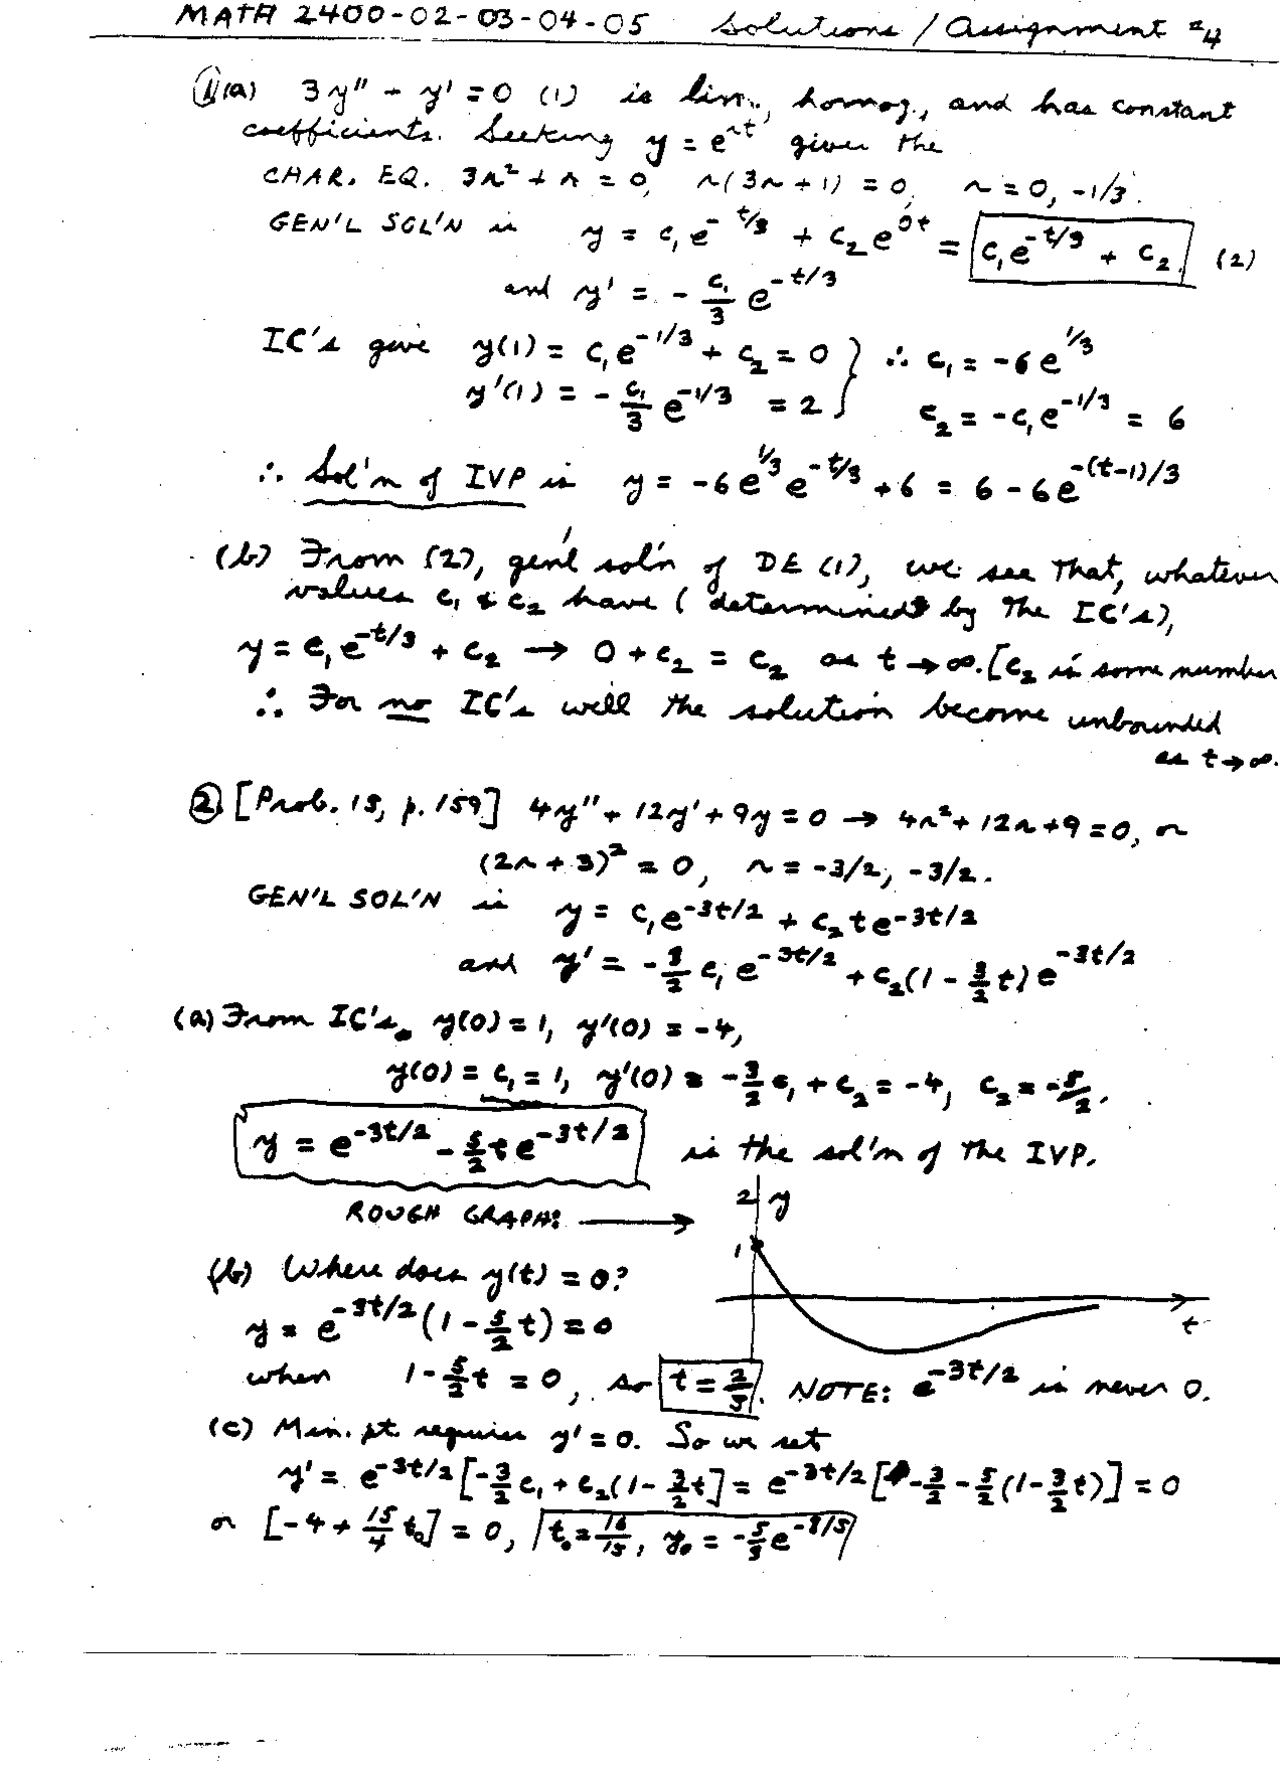 MATH 2400-02-03-04-05 Solutions / Assignment #4
①(a) 3y'' - y' = 0 (1) is lin., homog., and has constant
coefficients. Seeking y = e^{rt} gives the
CHAR. EQ. 3r² + r = 0, r(3r+1) = 0, r = 0, -1/3.
GEN'L SOL'N is y = c₁e^{-t/3} + c₂e^{0t} = c₁e^{-t/3} + c₂. (2)
and y' = -c₁/3 e^{-t/3}
IC's give y(1) = c₁e^{-1/3} + c₂ = 0 } ∴ c₁ = -6e^{1/3}
y'(1) = -c₁/3 e^{-1/3} = 2 } c₂ = -c₁e^{-1/3} = 6
∴ Sol'n of IVP is y = -6e^{1/3}e^{-t/3} + 6 = 6 - 6e^{-(t-1)/3}
(b) From (2), gen'l sol'n of DE (1), we see that, whatever
values c₁ & c₂ have (determined by the IC's),
y = c₁e^{-t/3} + c₂ → 0 + c₂ = c₂ as t → ∞. [c₂ is some number
∴ For no IC's will the solution become unbounded
as t → ∞.
② [Prob. 13, p. 159] 4y'' + 12y' + 9y = 0 → 4r² + 12r + 9 = 0, or
(2r + 3)² = 0, r = -3/2, -3/2.
GEN'L SOL'N is y = c₁e^{-3t/2} + c₂te^{-3t/2}
and y' = -3/2 c₁e^{-3t/2} + c₂(1 - 3/2 t)e^{-3t/2}
(a) From IC's, y(0) = 1, y'(0) = -4,
y(0) = c₁ = 1, y'(0) = -3/2 c₁ + c₂ = -4, c₂ = -5/2.
y = e^{-3t/2} - 5/2 te^{-3t/2} is the sol'n of the IVP.
ROUGH GRAPH: →
2 y
1
t
(b) Where does y(t) = 0?
y = e^{-3t/2}(1 - 5/2 t) = 0
when 1 - 5/2 t = 0, so t = 2/5. NOTE: e^{-3t/2} is never 0.
(c) Min. pt. requires y' = 0. So we set
y' = e^{-3t/2}[-3/2 c₁ + c₂(1 - 3/2 t] = e^{-3t/2}[-3/2 - 5/2(1 - 3/2 t)] = 0
or [-4 + 15/4 t₀] = 0, t₀ = 16/15, y₀ = -5/3 e^{-8/5}